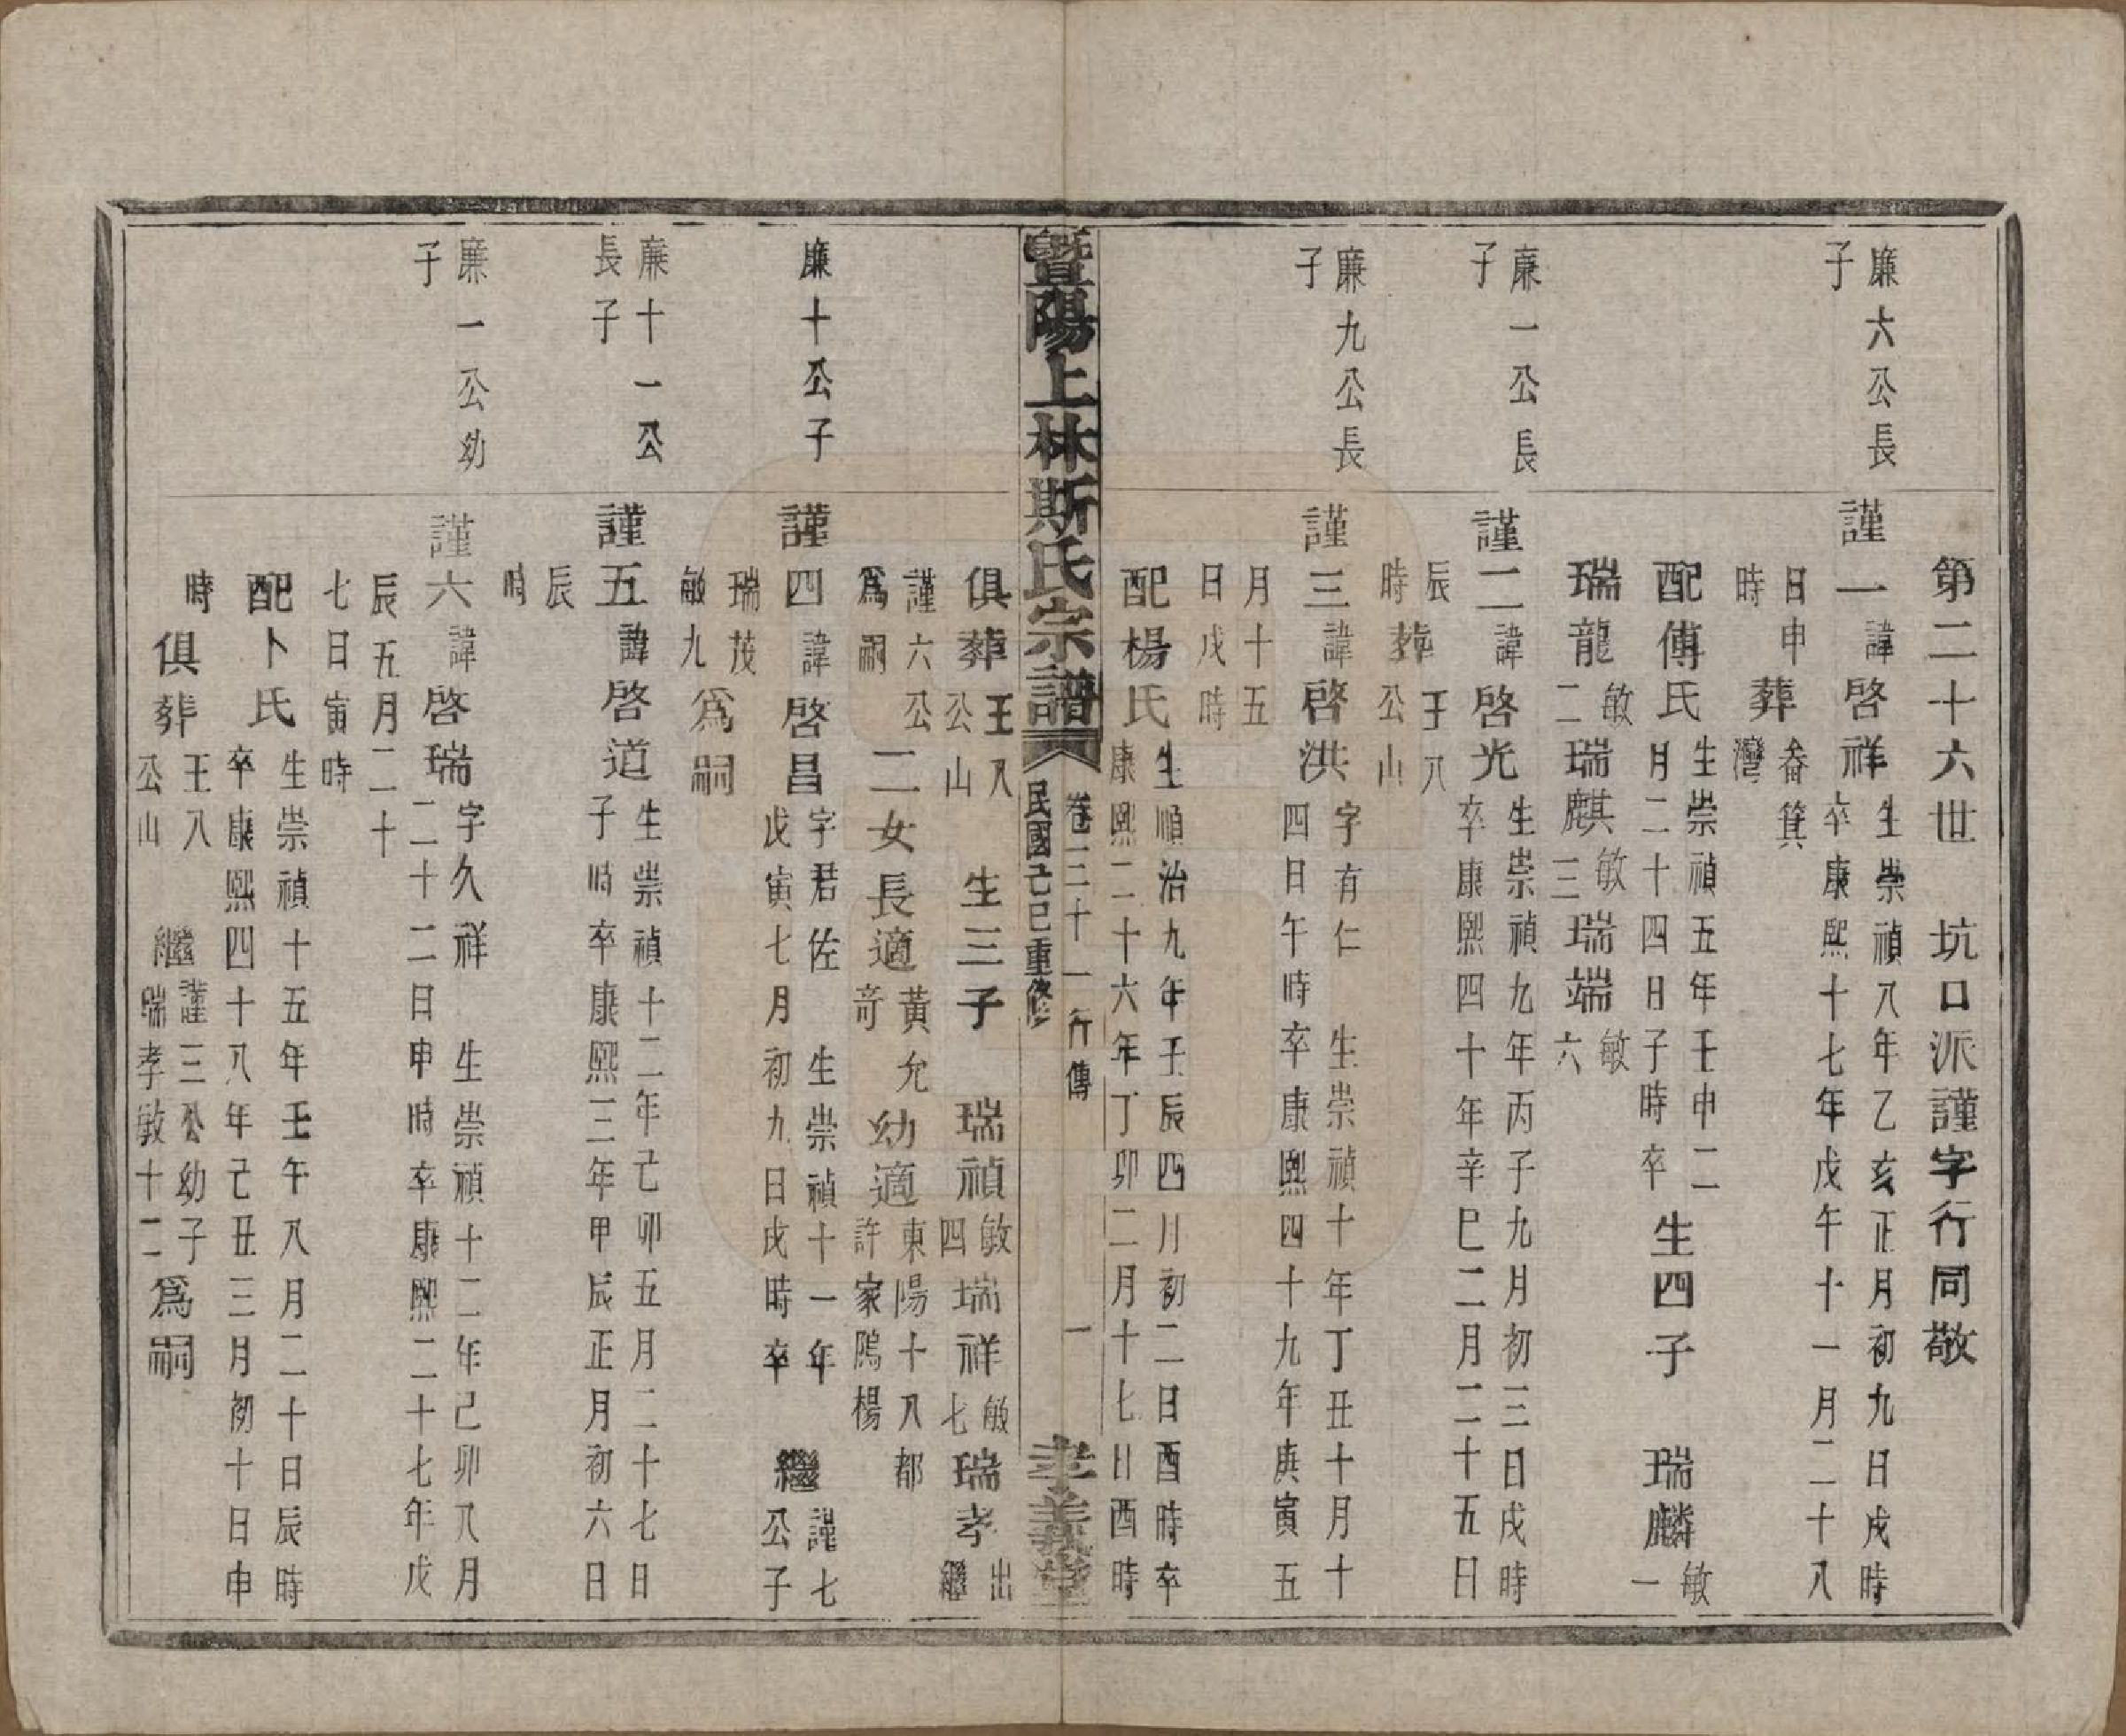 第二十六世 坑口派謹字行同敬
廉六公長子
謹一諱啓祥 生崇禎八年乙亥正月初九日戌時
卒康熙十七年戊午十一月二十八
日申時 葬畚箕灣
配傅氏 生崇禎五年壬申二月二十四日子時卒 生四子 瑞麟敏一
瑞龍敏二 瑞麒敏三 瑞端敏六
廉一公長子
謹二諱啓光 生崇禎九年丙子九月初三日戌時
卒康熙四十年辛巳二月二十五日
辰時 葬王八公山
廉九公長子
謹三諱啓洪 字有仁 生崇禎十年丁丑十月十
四日午時卒康熙四十九年庚寅五
月十五日戌時
配楊氏 生順治九年壬辰四月初二日酉時卒
康熙二十六年丁卯二月十七日酉時
暨陽上林斯氏宗譜 卷三十一 行傳 一
民國己巳重修
孝義堂
俱葬王八公山 生三子 瑞禎敏四 瑞祥敏七 瑞孝出繼
謹六公爲嗣 二女長適黃允奇 幼適東陽十八都
許家隖楊
廉十公子
謹四諱啓昌 字君佐 生崇禎十一年
戊寅七月初九日戌時卒 繼謹七公子
瑞茂敏九爲嗣
廉十一公長子
謹五諱啓道 生崇禎十二年己卯五月二十七日
子時卒康熙三年甲辰正月初六日
辰時
廉一公幼子
謹六諱啓瑞 字久祥 生崇禎十二年己卯八月
二十二日申時卒康熙二十七年戊
辰五月二十七日寅時
配卜氏 生崇禎十五年壬午八月二十日辰時
卒康熙四十八年己丑三月初十日申
時
俱葬王八公山 繼謹三公幼子瑞孝敏十二爲嗣